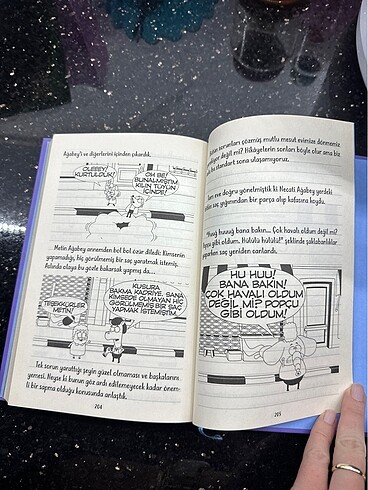 Ağabey'i ve diğerlerini içinden çıkardık.
OLEEEY!
KURTULDUK!
OH BE!
BUNALMIŞTIM
KILIN TÜYÜN
İÇİNDE!
Metin Ağabey annemden bol bol özür diledi; Kimsenin
yapamadığı, hiç görülmemiş bir saç yaratmak istemiş.
Aslında olaya bu gözle bakarsak yapmış da...
TEŞEKKÜRLER
METİN!
KUSURA
BAKMA KADRİYE. SANA
KİMSEDE OLMAYAN HİÇ
GÖRÜLMEMİŞ BİR SAÇ
YAPMAK İSTEMİŞTİM...
Tek sorun yarattığı şeyin güzel olmaması ve başkalarını
yemesi. Neyse ki bunun göz ardı edilemeyecek kadar önem-
li bir sapma olduğu konusunda anlaştık.
204
sorunları çözmüş mutlu mesut evimize dönmemiz
değil mi? Hikâyelerin sonları böyle olur ama biz
standart sona ulaşamıyoruz.
eve doğru yönelmiştik ki Necati Ağabey yerdeki
saç yığınından bir parça alıp kafasına koydu.
"Huuğ huuuğ bana bakın... Çok havalı oldum değil mi?
Popçu gibi oldum. Hülülü hülülü!" şeklinde şaklabanlıklar
saç yeniden canlandı.
HU HUU!
BANA BAKIN!
ÇOK HAVALI OLDUM
DEĞİL Mİ? POPÇU
GİBİ OLDUM!
205